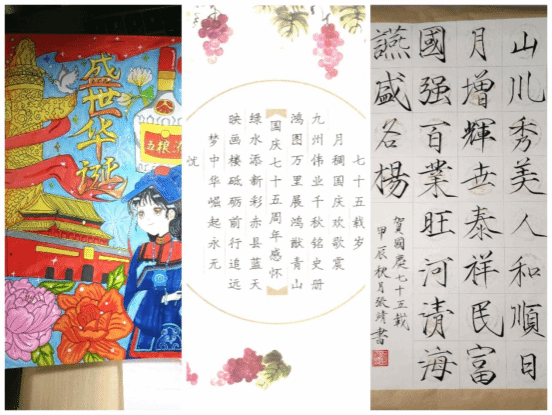 盛世华诞
五粮液
七十五载岁
月稠国庆欢歌震
九州伟业千秋铭史册
鸿图万里展鸿猷青山
【国庆七十五周年感怀】
绿水添新彩赤县蓝天
映画楼砥砺前行追远
梦中华崛起永无
忧
山川秀美人和順日
月增輝世泰祥民富
國强百業旺河清海
讌盛名揚
賀國慶七十五載
甲辰秋月張靖書